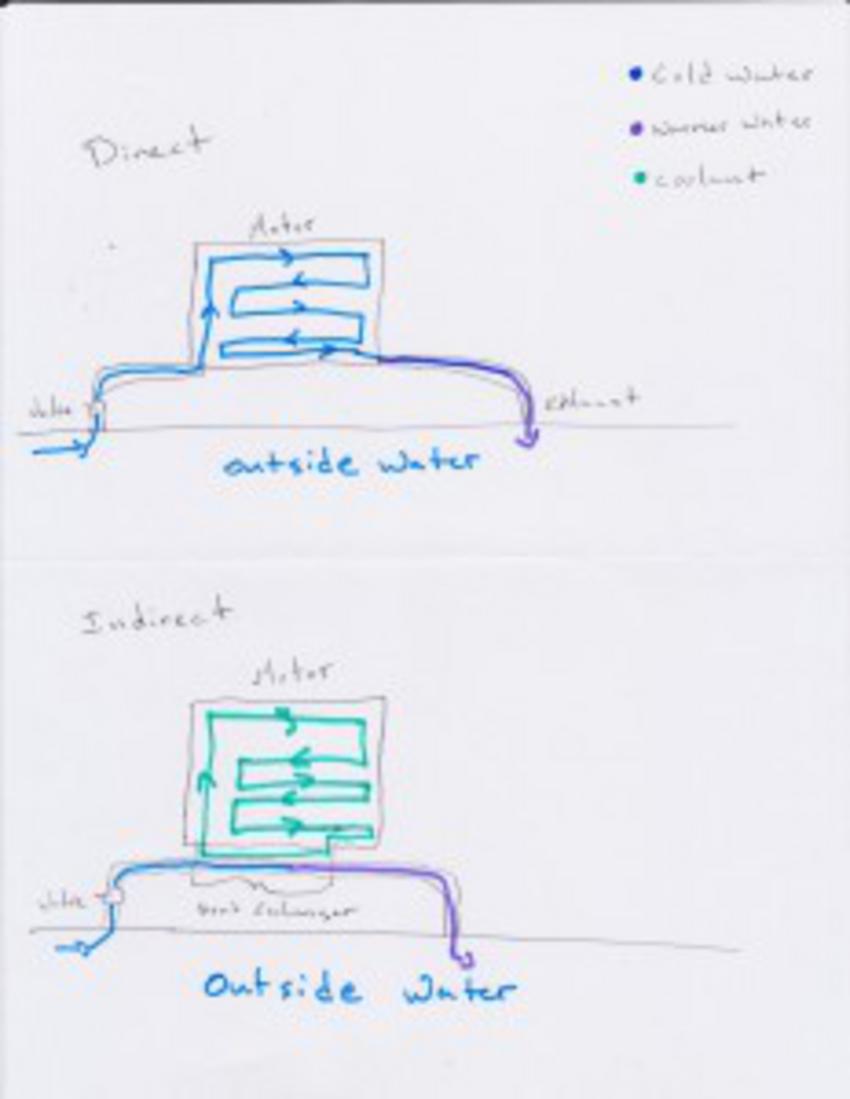 Cold water
Warmer water
coolant
Direct
Motor
Valve
Exhaust
outside water
Indirect
Motor
Valve
Heat Exchanger
Outside Water